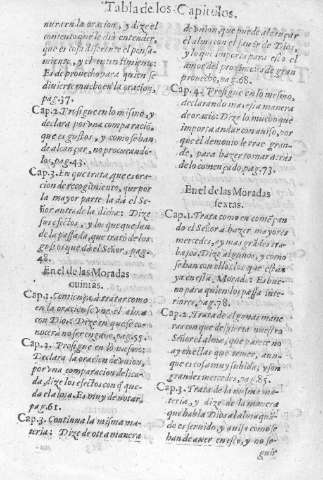 Tabla de los Capitulos.
nurer en la oracion, y dize el
contento que le dà entender,
que es cosa diferente el pensa-
miento, y el entendimiento:
Es de prouecho para quien se
diuierte mucho en la oracion,
pag.37.
Cap.2. Prosigue en lo mismo, y
declara por vna comparació,
que es gustos, y como se han
de alcançar, no procurando-
los, pag.43.
Cap.3. En que trata, que es ora-
cion de recogimiento, que por
la mayor parte la dà el Se-
ñor antes de la dicha: Dize
sus efectos, y los que quedan
de la passada, que tratò de los
gustos que dà el Señor. pag.
48.
En el de las Moradas
quintas.
Cap.1. Comiença à tratar como
en la oracion se vne el alma
con Dios: Dize en que se co-
nocerà no ser engaño, pag.55.
Cap.2. Prosigue en lo mesmo:
Declara la oracion de vnion,
por vna comparacion delica-
da, dize los efectos con q̃ que-
da el alma. Es muy de notar,
pag.61.
Cap.3. Continua la misma ma-
teria: Dize de otra manera
de vnion, que puede alcançar
el alma con el fauor de Dios,
y lo que importa para esto el
amor del proximo: es de gran
prouecho, pag.68.
Cap.4. Prosigue en lo mesmo,
declarando mas esta manera
de oració: Dize lo mucho que
importa andar con auiso, por
que el demonio le trae gran-
de, para hazer tornar atràs
de lo començado, pag.73.
En el de las Moradas
sextas.
Cap.1. Trata como en començan-
do el Señor à hazer mayores
mercedes, ay mas grandes tra-
bajos: Dize algunos, y como
se han con ellos los que estàn
ya en esta Morada: Es bue-
no para quien los passa inte-
riores, pag.78.
Cap.2. Trata de algunas mane-
ras con que despierta nuestro
Señor el alma, que parece no
ay en ellas que temer, aun-
que es cosa muy subida, y son
grandes mercedes, pag.85.
Cap.3. Trata de la misma ma-
teria, y dize de la manera
que habla Dios al alma quã-
do es seruido, y auisa como se
han de auer en esto, y no se-
guir-